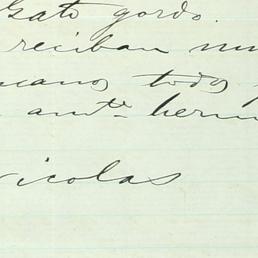 Gato gordo.
reciban mu
manos todos
amte herm
icolas